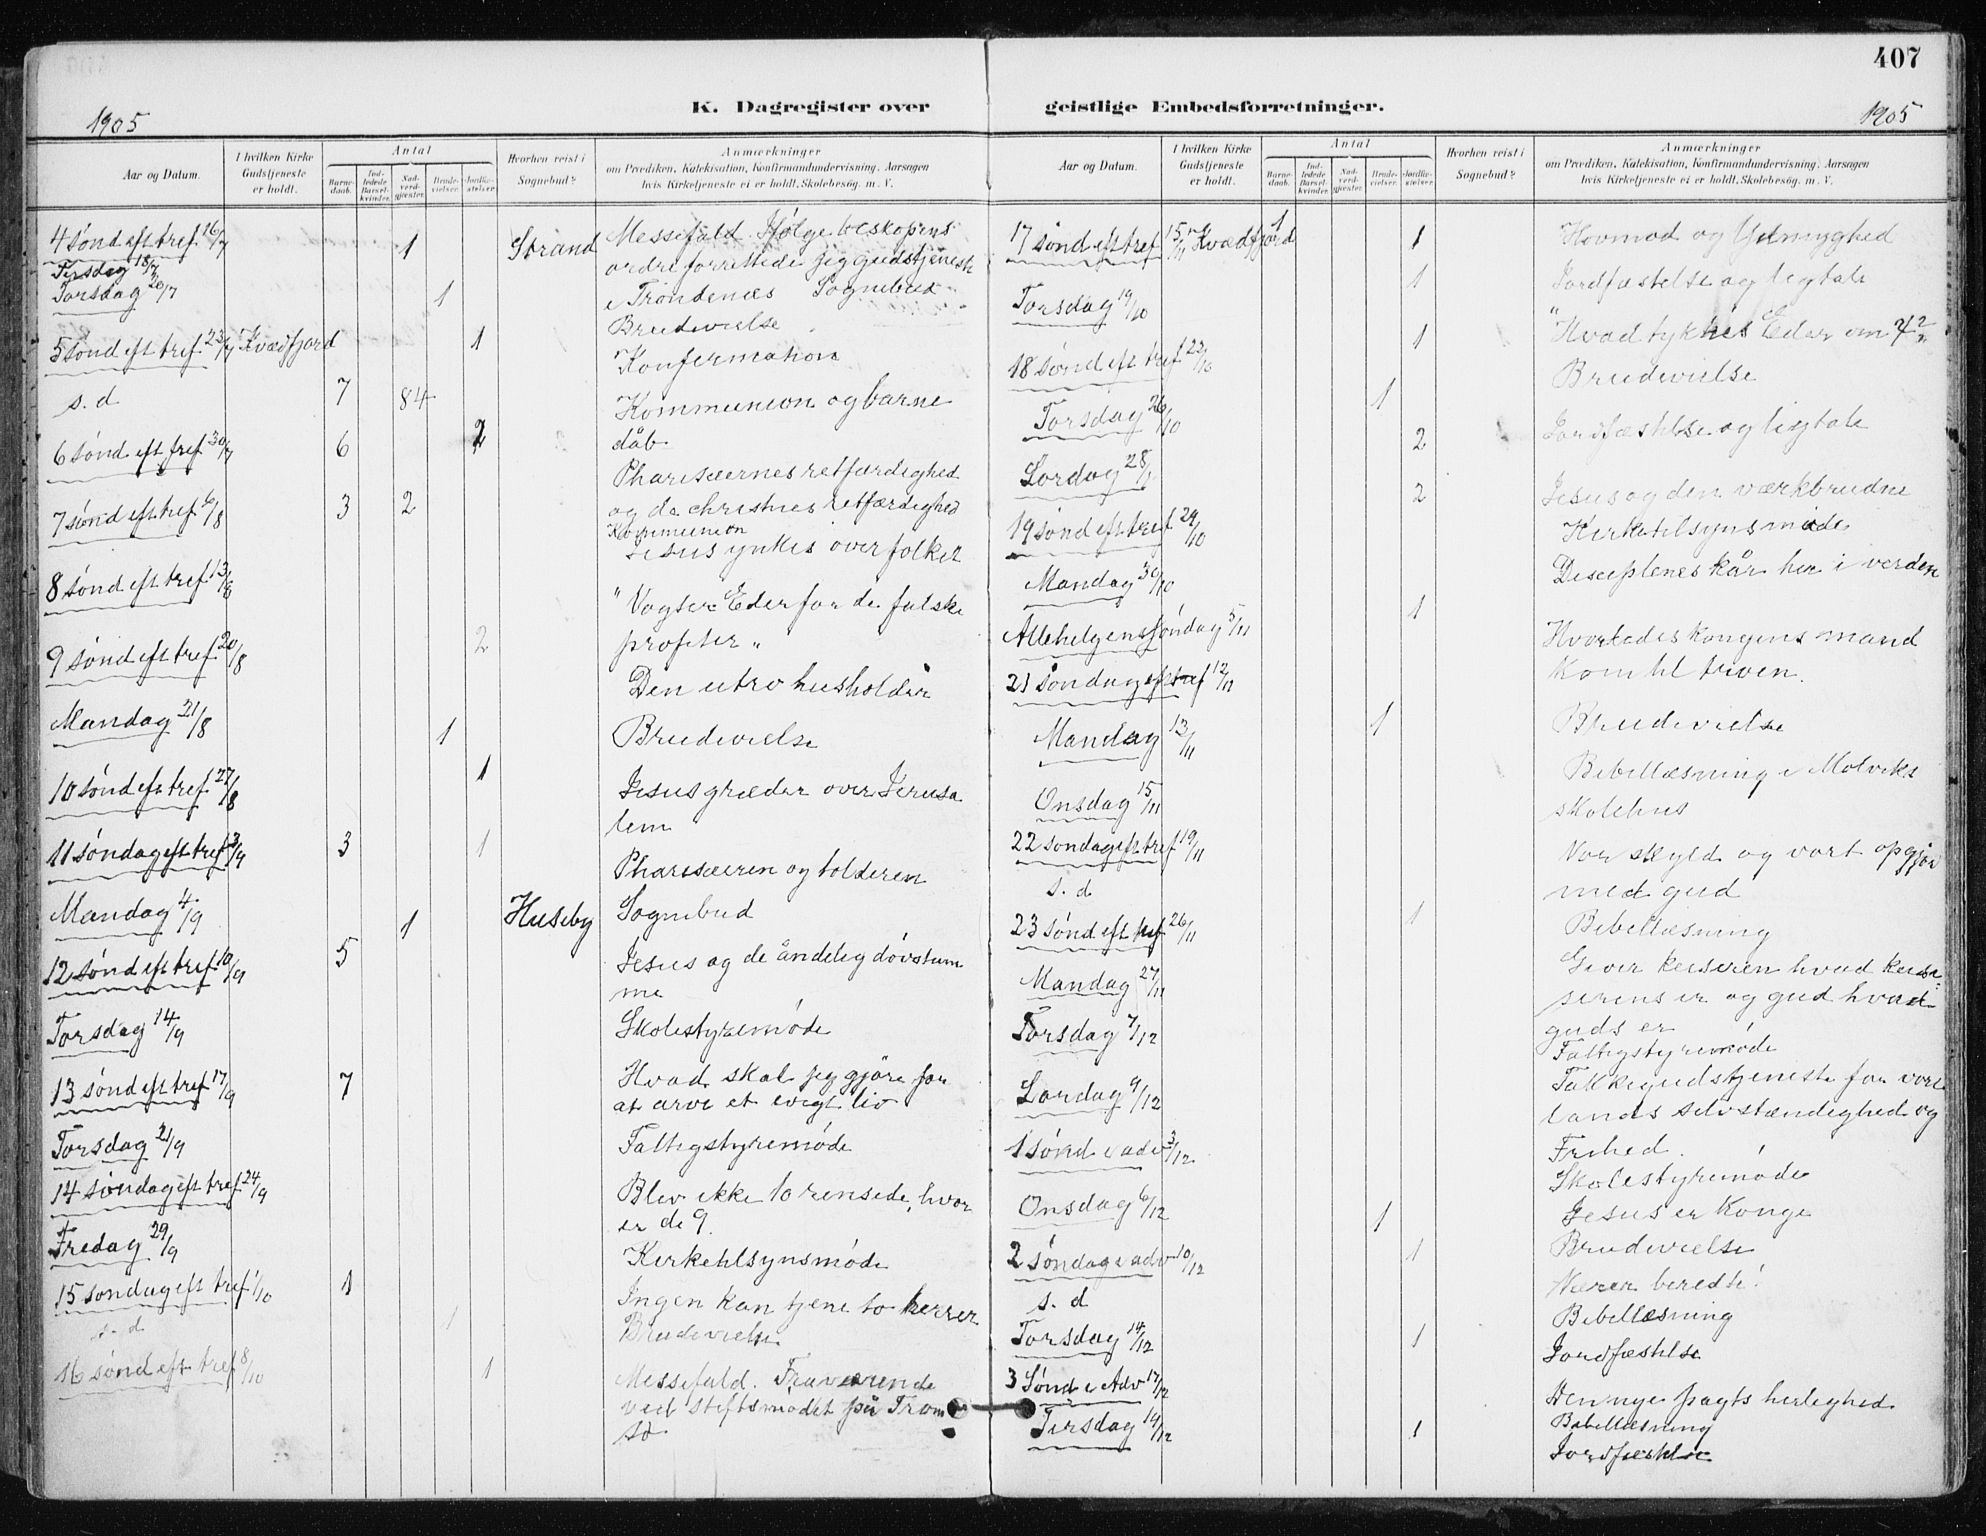 407
K. Dagregister over geistlige Embedsforretninger.
1905
1905
Aar og Datum.
I hvilken Kirke Gudstjeneste er holdt.
Antal
Barnedaab.
Indledede Barselkvinder.
Nadverdgjester.
Brudevielser.
Jordfæstelser.
Hvorhen reist i Sognebud?
Anmærkninger
om Prædiken, Katekisation, Konfirmandundervisning, Aarsagen
hvis Kirketjeneste ei er holdt, Skolebesøg, m. V.
4 sønd eft tref 16/7 1 Strand Messefald. Ifølge beskopens
Tirsdag 18/7 ordre forrettede jeg gudstjeneste
Torsdag 20/7 1 i Trondenæs Sognebud
Brudevielse
5 sønd eft tref 23/7 Kvædfjord 1 Konfirmation
s. d 7 84 Kommunion og barne
dåb
6 sønd eft tref 30/7 6 2 Phariseernes retfærdighed
7 sønd eft tref 6/8 3 2 og de christnes retfærdighed
Kommunion
Jesus ynkes over folket
8 sønd eft tref 13/8 "Vogter Eder for de falske
profeter"
9 sønd eft tref 20/8 2 Den utro husholder
Mandag 21/8 1 Brudevielse
10 sønd eft tref 27/8 1 Jesus græder over Jerusa
lem
11 søndag eft tref 3/9 3 1 Phariseeren og tolderen
Mandag 4/9 1 Huseby Sognebud
12 sønd eft tref 10/9 5 Jesus og de åndelig døvstum
me
Torsdag 14/9 Skolestyremøde
13 sønd eft tref 17/9 7 Hvad skal jeg gjøre for
at arve et evigt liv
Torsdag 21/9 Fattigstyremøde
14 søndag eft tref 24/9 Blev ikke 10 rensede, hvor
er de 9.
Fredag 29/9 Kirketilsynsmøde
15 søndag eft tref 1/10 1 Ingen kan tjene to herrer
s. d 1 Brudevielse
16 sønd eft tref 8/10 1 Messefald. Fraværende
ved stiftsmødet på Trom
sø
Aar og Datum.
I hvilken Kirke Gudstjeneste er holdt.
Antal
Barnedaab.
Indledede Barselkvinder.
Nadverdgjester.
Brudevielser.
Jordfæstelser.
Hvorhen reist i Sognebud?
Anmærkninger
om Prædiken, Katekisation, Konfirmandundervisning, Aarsagen
hvis Kirketjeneste ei er holdt, Skolebesøg, m. V.
17 sønd eft tref Kvædfjord 1 1 Hovmod og Ydmyghed
Torsdag 19/10 1 Jordfæstelse og ligtale
18 sønd eft tref 22/10 1 "Hvad tykkes Eder om
Torsdag 26/10 1 Brudevielse
Lørdag 28/ 2 Jordfæstelse og ligtale
19 sønd eft tref 29/10 2 Jesus og den værkbrudne
Mandag 30/10 Kirketilsynsmøde
Disciplenes kår her i verden
Allehelgensøndag 5/11 1
21 søndag eft tref 12/11 Hvorledes kongens mand
kom til troen.
Mandag 13/11 1 Brudevielse
Onsdag 15/11 Bibellæsning i Molviks
skolehus
22 søndag eft tref 19/11 Vor skyld og vort opgjør
med gud
s. d Bibellæsning
23 sønd eft tref 26/11 1 Giver keiseren hvad kei
serens er og gud hvad
guds er
Mandag 27/11 Fattigstyremøde
Torsdag 7/12 Takkegudstjeneste for vort
Lørdag 9/12 lands selvstændighed og
Frihed.
1 sønd i adv 3/12 Skolestyremøde
Jesus er Konge
Onsdag 6/12 1 Brudevielse
2 søndag i adv 10/12 1 Værer beredte!
s. d Bibellæsning
Torsdag 14/12 1 Jordfæstelse
3 Sønd i Adv 17/12 Den nye pagts herlighed
Bibellæsning
Tirsdag 19/12 1 Jordfæstelse